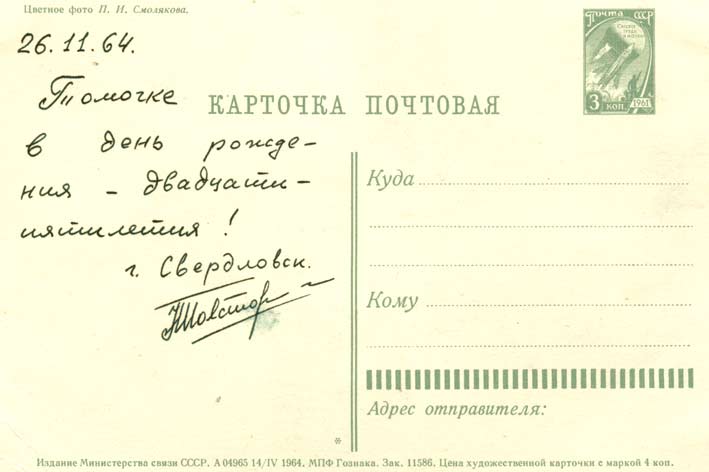 Цветное фото П. И. Смолякова.
26.11.64.
Томочке
в день рожде-
ния – двадцати-
пятилетия!
г. Свердловск.
ПОЧТА СССР
3 КОП. 1961
КАРТОЧКА ПОЧТОВАЯ
Куда
Кому
Адрес отправителя:
*
Издание Министерства связи СССР. А 04965 14/IV 1964. МПФ Гознака. Зак. 11586. Цена художественной карточки с маркой 4 коп.